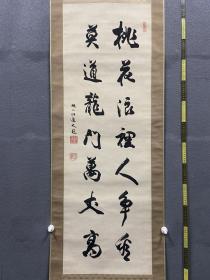 桃花浪裡人争看
莫道龍門萬丈高